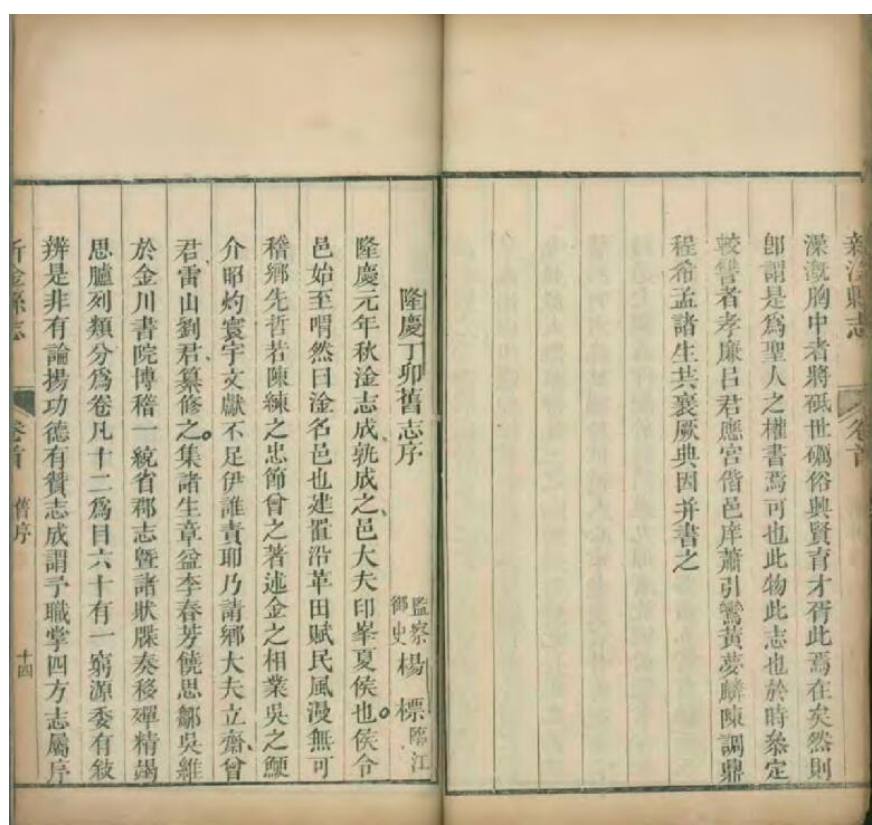 新淦縣志
卷首
澡漑胸中者將砥世礪俗興賢育才胥此焉在矣然則
卽謂是爲聖人之權書焉可也此物此志也於時叅定
較讐者孝廉呂君應宮偕邑庠蕭引鸞黃夢麟陳調鼎
程希孟諸生共襄厥典因幷書之
隆慶丁卯舊志序
監察御史楊標臨江
隆慶元年秋淦志成孰成之邑大夫印峯夏侯也侯令
邑始至喟然曰淦名邑也建置沿革田賦民風漫無可
稽鄉先哲若陳練之忠節曾之著述金之相業吳之鯁
介昭灼寰宇文獻不足伊誰責耶乃請鄉大夫立齋曾
君雷山劉君纂修之集諸生章益李春芳饒思鄒吳維
於金川書院博稽一統省郡志暨諸狀牒奏移殫精竭
思臚列類分爲卷凡十二爲目六十有一窮源委有敍
辨是非有論揚功德有贊志成謂予職掌四方志屬序
新淦縣志
卷首
舊序
十四